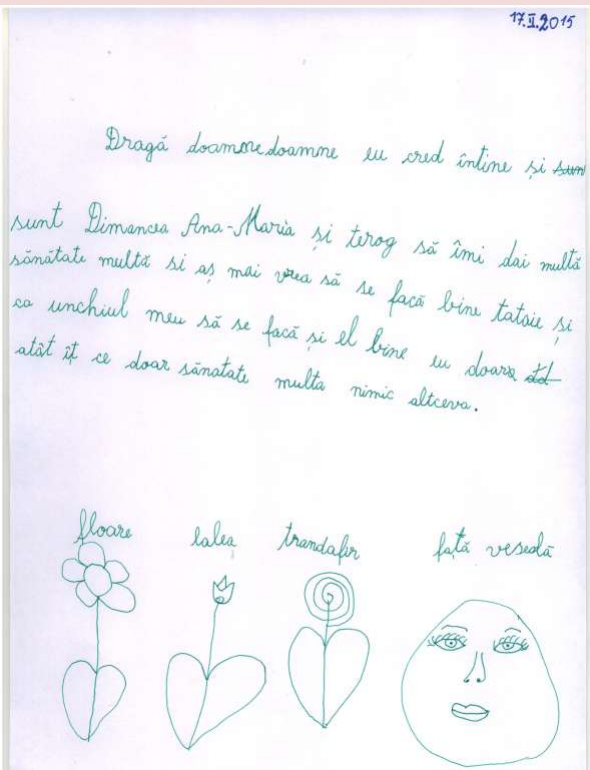 17.II.2015
Dragă doamne doamne eu cred întine și sunt
sunt Dimancea Ana-Maria și terog să îmi dai multă
sănătate multă si aș mai vrea să se facă bine tataie și
ca unchiul meu să se facă și el bine eu doară atat
atât îț ce doar sănatate multa nimic altceva.
floare lalea trandafir față veselă